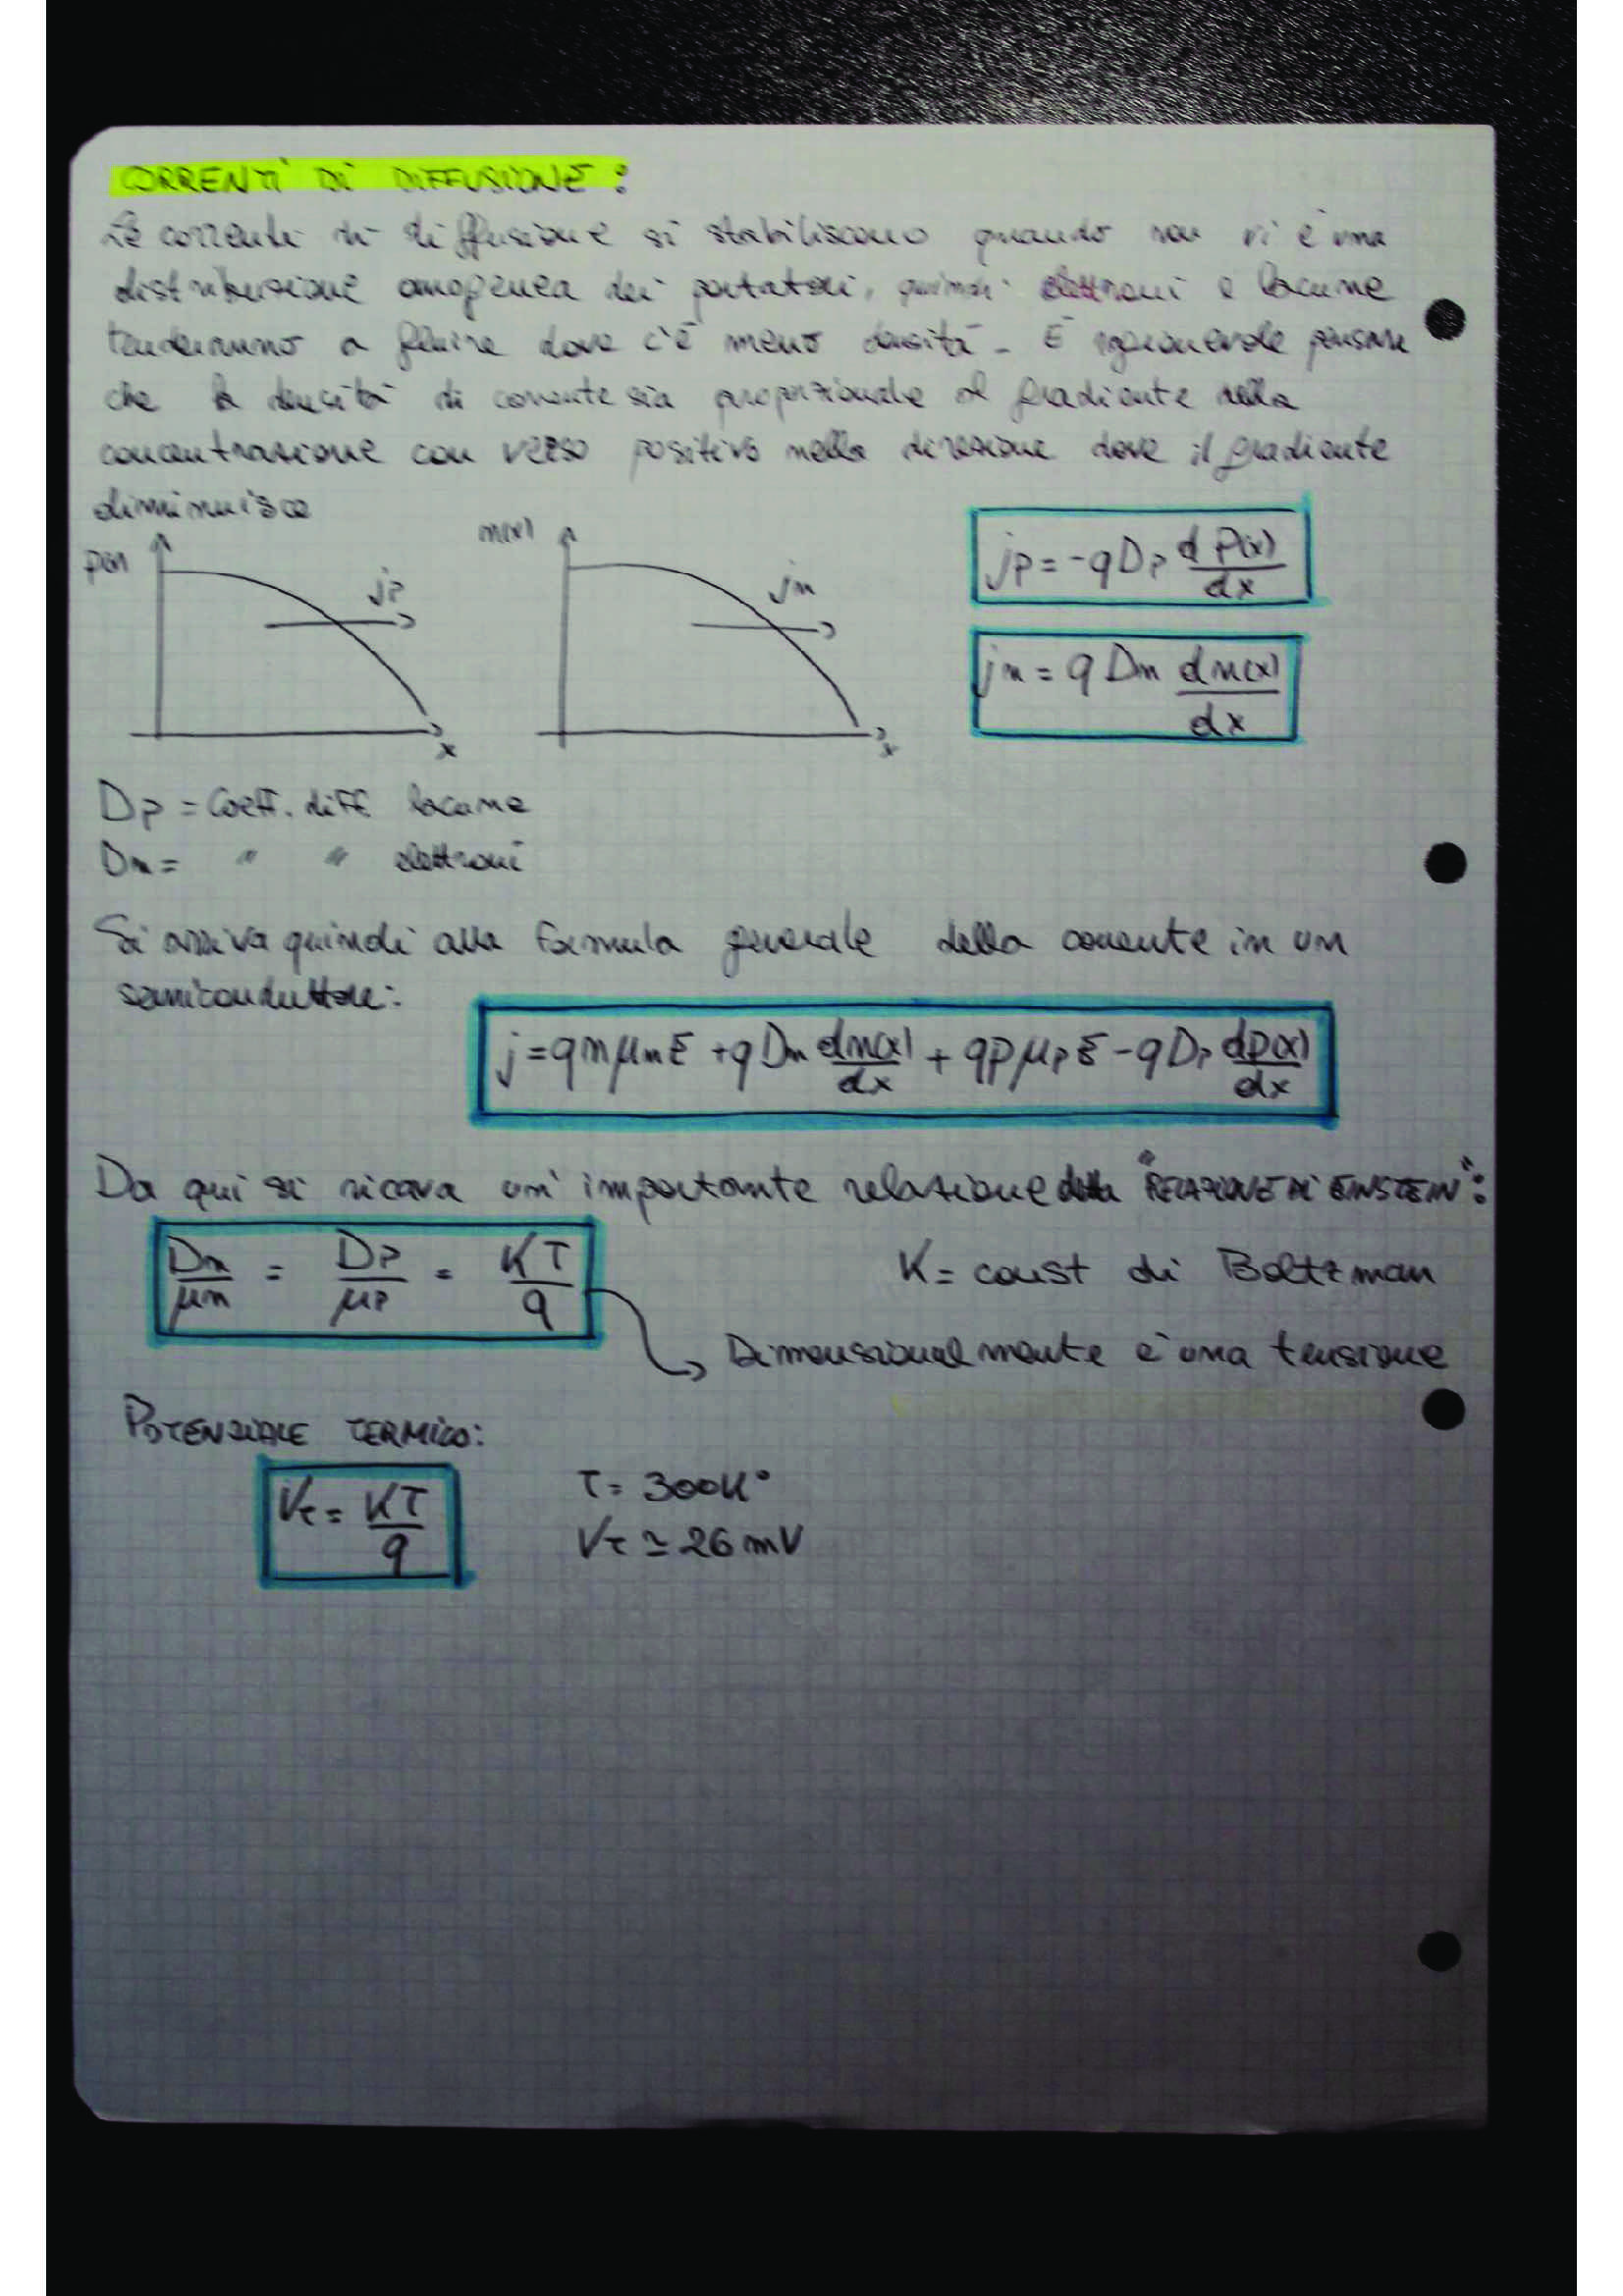 CORRENTI DI DIFFUSIONE:
Le correnti di diffusione si stabiliscono quando non vi è una
distribuzione omogenea dei portatori, quindi elettroni e lacune
tenderanno a fluire dove c'è meno densità. È ragionevole pensare
che la densità di corrente sia proporzionale al gradiente della
concentrazione con verso positivo nella direzione dove il gradiente
diminuisce
p(x) jp x
n(x) jn x
jp = -q Dp dP(x)/dx
jn = q Dn dn(x)/dx
Dp = Coeff. diff lacune
Dn = " " elettroni
Si arriva quindi alla formula generale della corrente in un
semiconduttore:
j = q n μn E + q Dn dn(x)/dx + q p μp E - q Dp dp(x)/dx
Da qui si ricava un' importante relazione detta "RELAZIONE DI EINSTEIN":
Dn/μn = Dp/μp = KT/q
K = const di Boltzman
Dimensionalmente è una tensione
POTENZIALE TERMICO:
VT = KT/q
T = 300K°
VT ≃ 26 mV